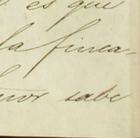 es que
la finca-
sabe